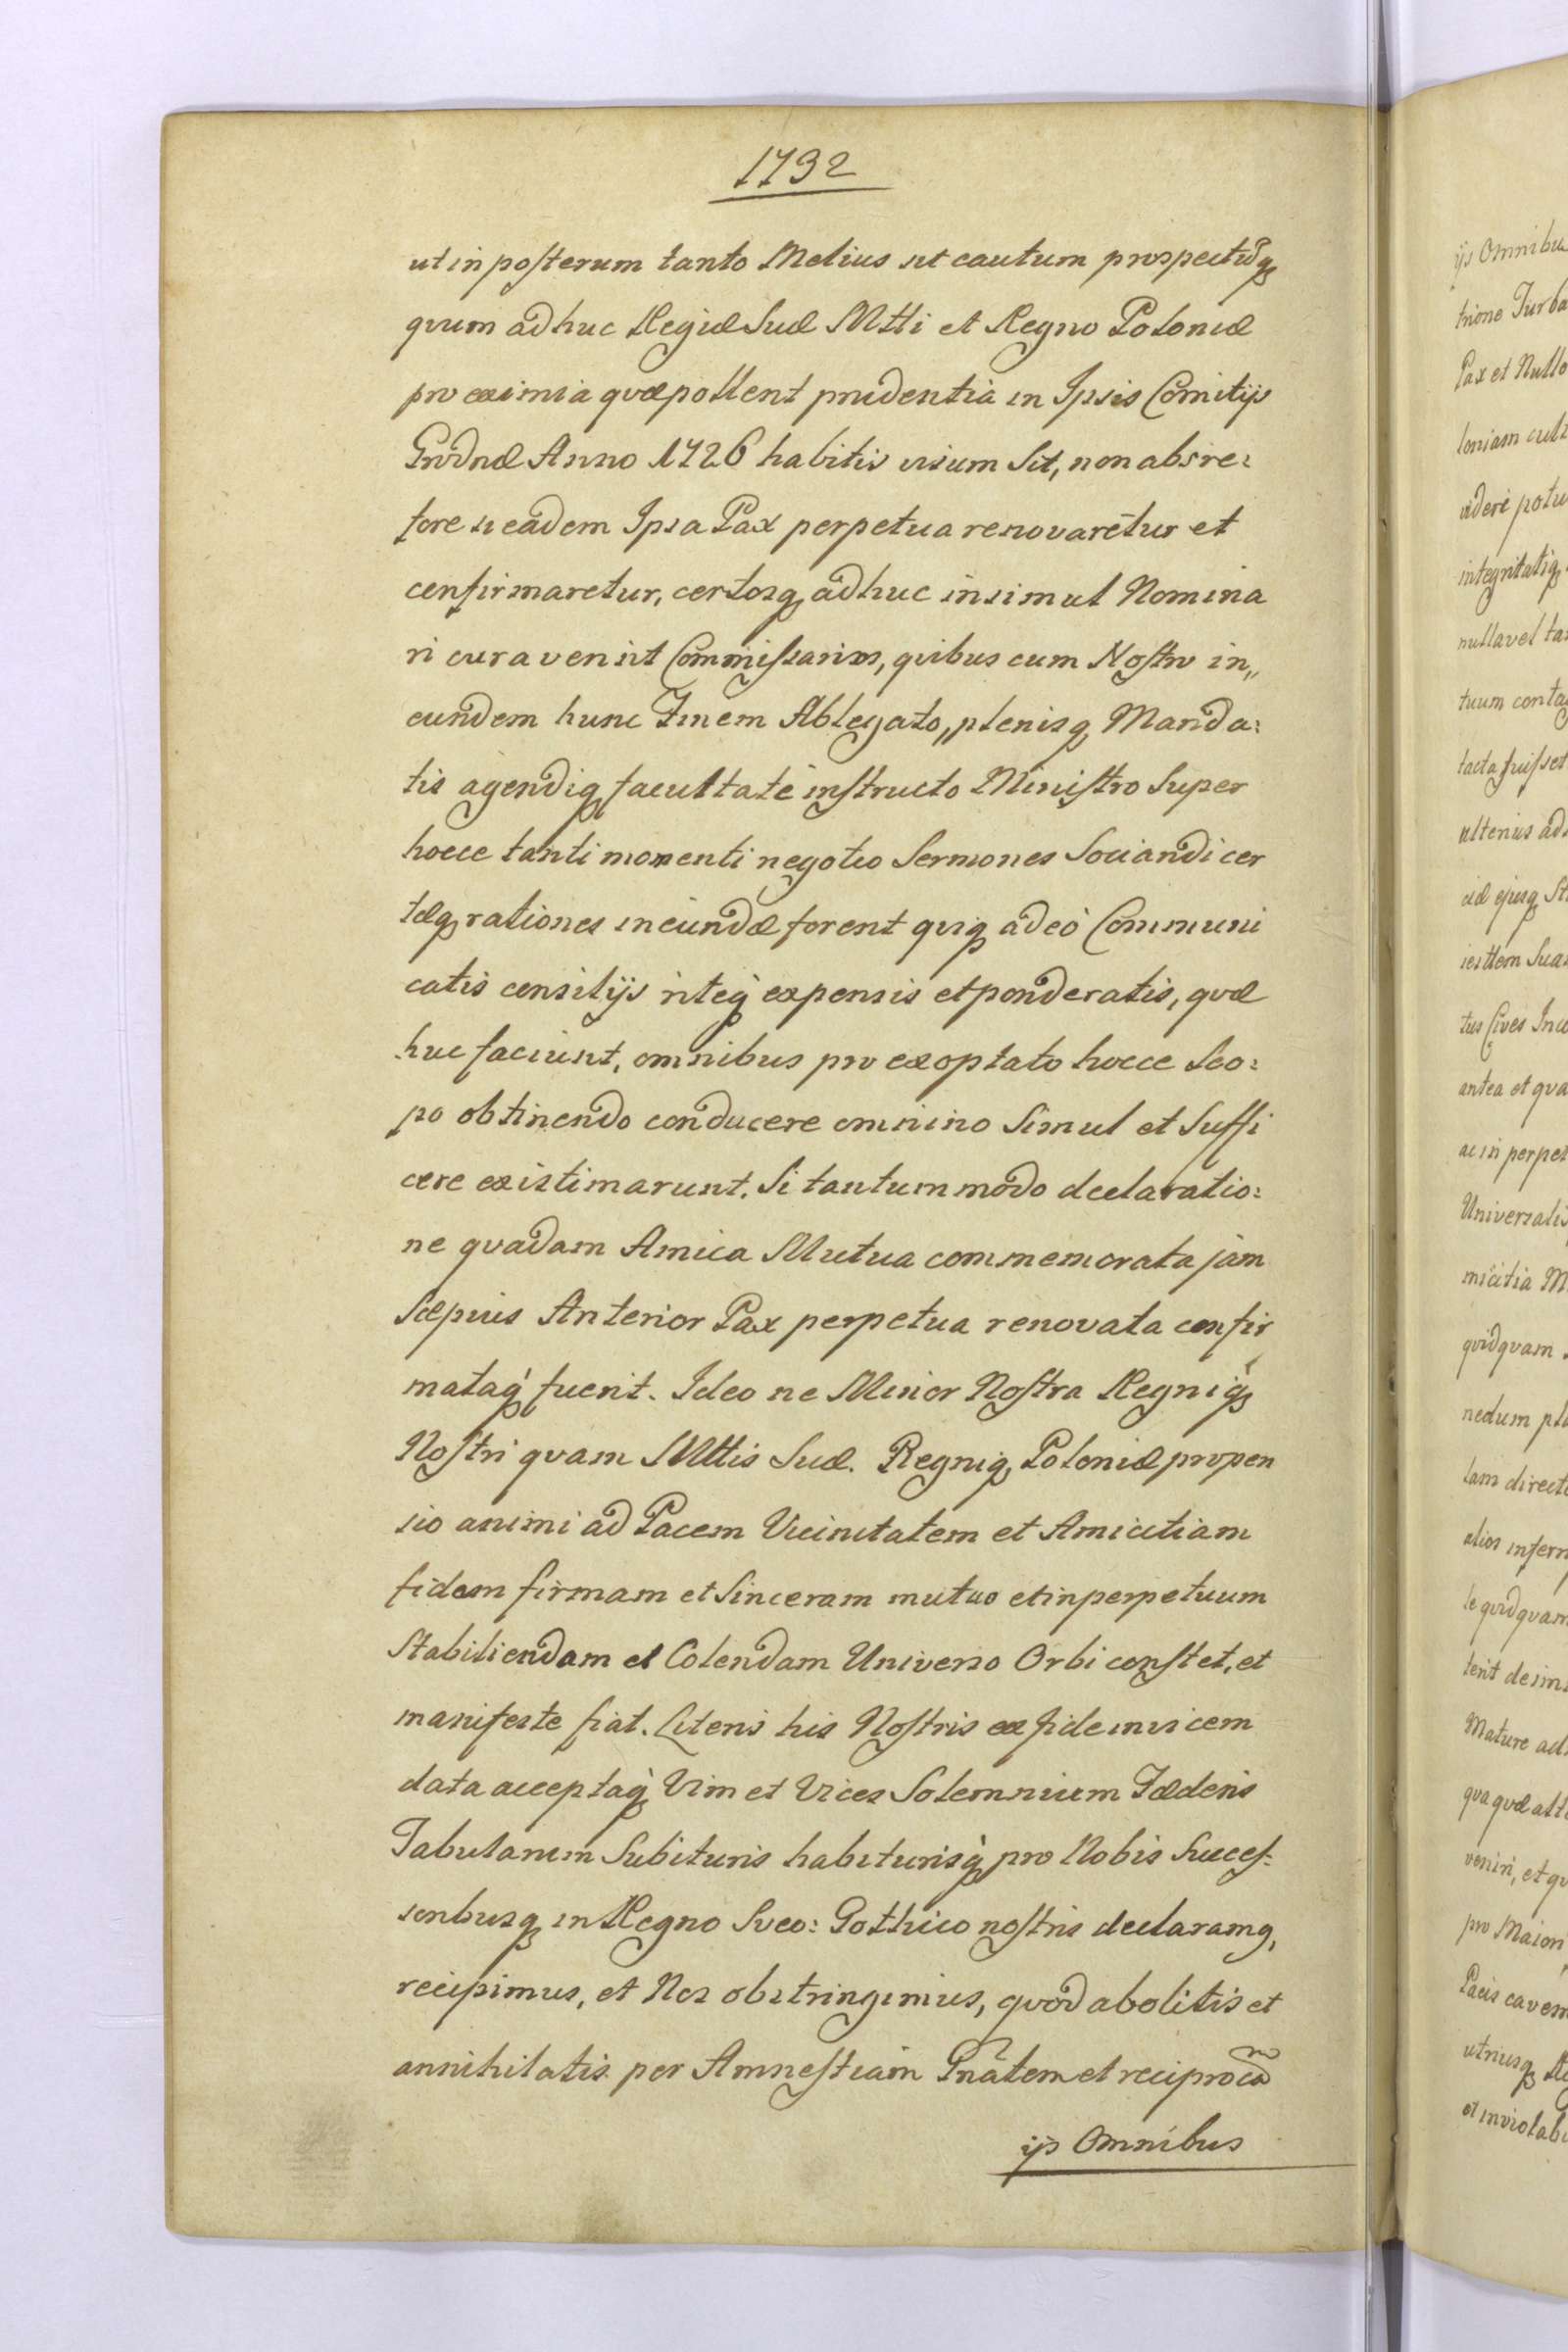 1732
ut in posterum tanto Melius sit cautum prospectũq
qvum adhuc Regiæ Suæ Mtti et Regno Poloniæ
pro eximia qvæ pollent prudentia in Ipsis Comitijs
Grodnæ Anno 1726 habitis visum Sit, non abs re:
fore si eadem Ipsa Pax perpetua renovaretur et
confirmaretur, certosq adhuc insimul Nomina
ri curaverint Commissarios, qvibus cum Nostro in,,
eundem hunc Finem Ablegato,, plenisq Manda:
tis agendiq facultate instructo Ministro Super
hocce tanti momenti negotio Sermones Sociandi cer
tæq rationes ineundæ forent qviq adeo Communi
catis consilijs riteq expensis et ponderatis, qvæ
huc faciunt, omnibus pro exoptato hocce Sco:
po obtinendo conducere omnino Simul et Suffi
cere existimarunt. Si tantummodo declaratio:
ne qvadam Amica Mutua commemorata jam
Sæpius Anterior Pax perpetua renovata confir
mataq fuerit. Ideo ne Minor Nostra Regniq
Nostri qvam Mttis Suæ. Regniq Poloniæ propen
sio animi ad Pacem Vicinitatem et Amicitiam
fidam firmam et Sinceram mutuo et in perpetuum
Stabiliendam et Colendam Universo Orbi constet, et
manifeste fiat. Literis his Nostris ex fide invicem
data acceptaq Vim et Vices Solemnium Fæderis
Tabularum Subituris habiturisq pro Nobis Succes:
soribusq in Regno Sveo: Gothico nostris declaramq,
recipimus, et Nos obstringimus, qvod abolitis et
annihilatis per Amnestiam Gnãlem et reciprocam
ijs Omnibus
ijs Omnibu
trione Turba
Pax et Nullo
loniam cult
videri potu
integritatiq
nulla vel ta
tuum conta
tacta fuisset
ulterius ad
ciæ ejusq St
iesttem Sua
tus Cives Inc
antea et qva
ac in perpet
Universalis
micitia M
qvidqvam
nedum pl
tam direct
alios infer
le qvidqvam
terit de im
Mature ad
qva qvæ alt
veniri, et qv
pro Maiori
Pacis cavem
utriusq Re
et inviolabi